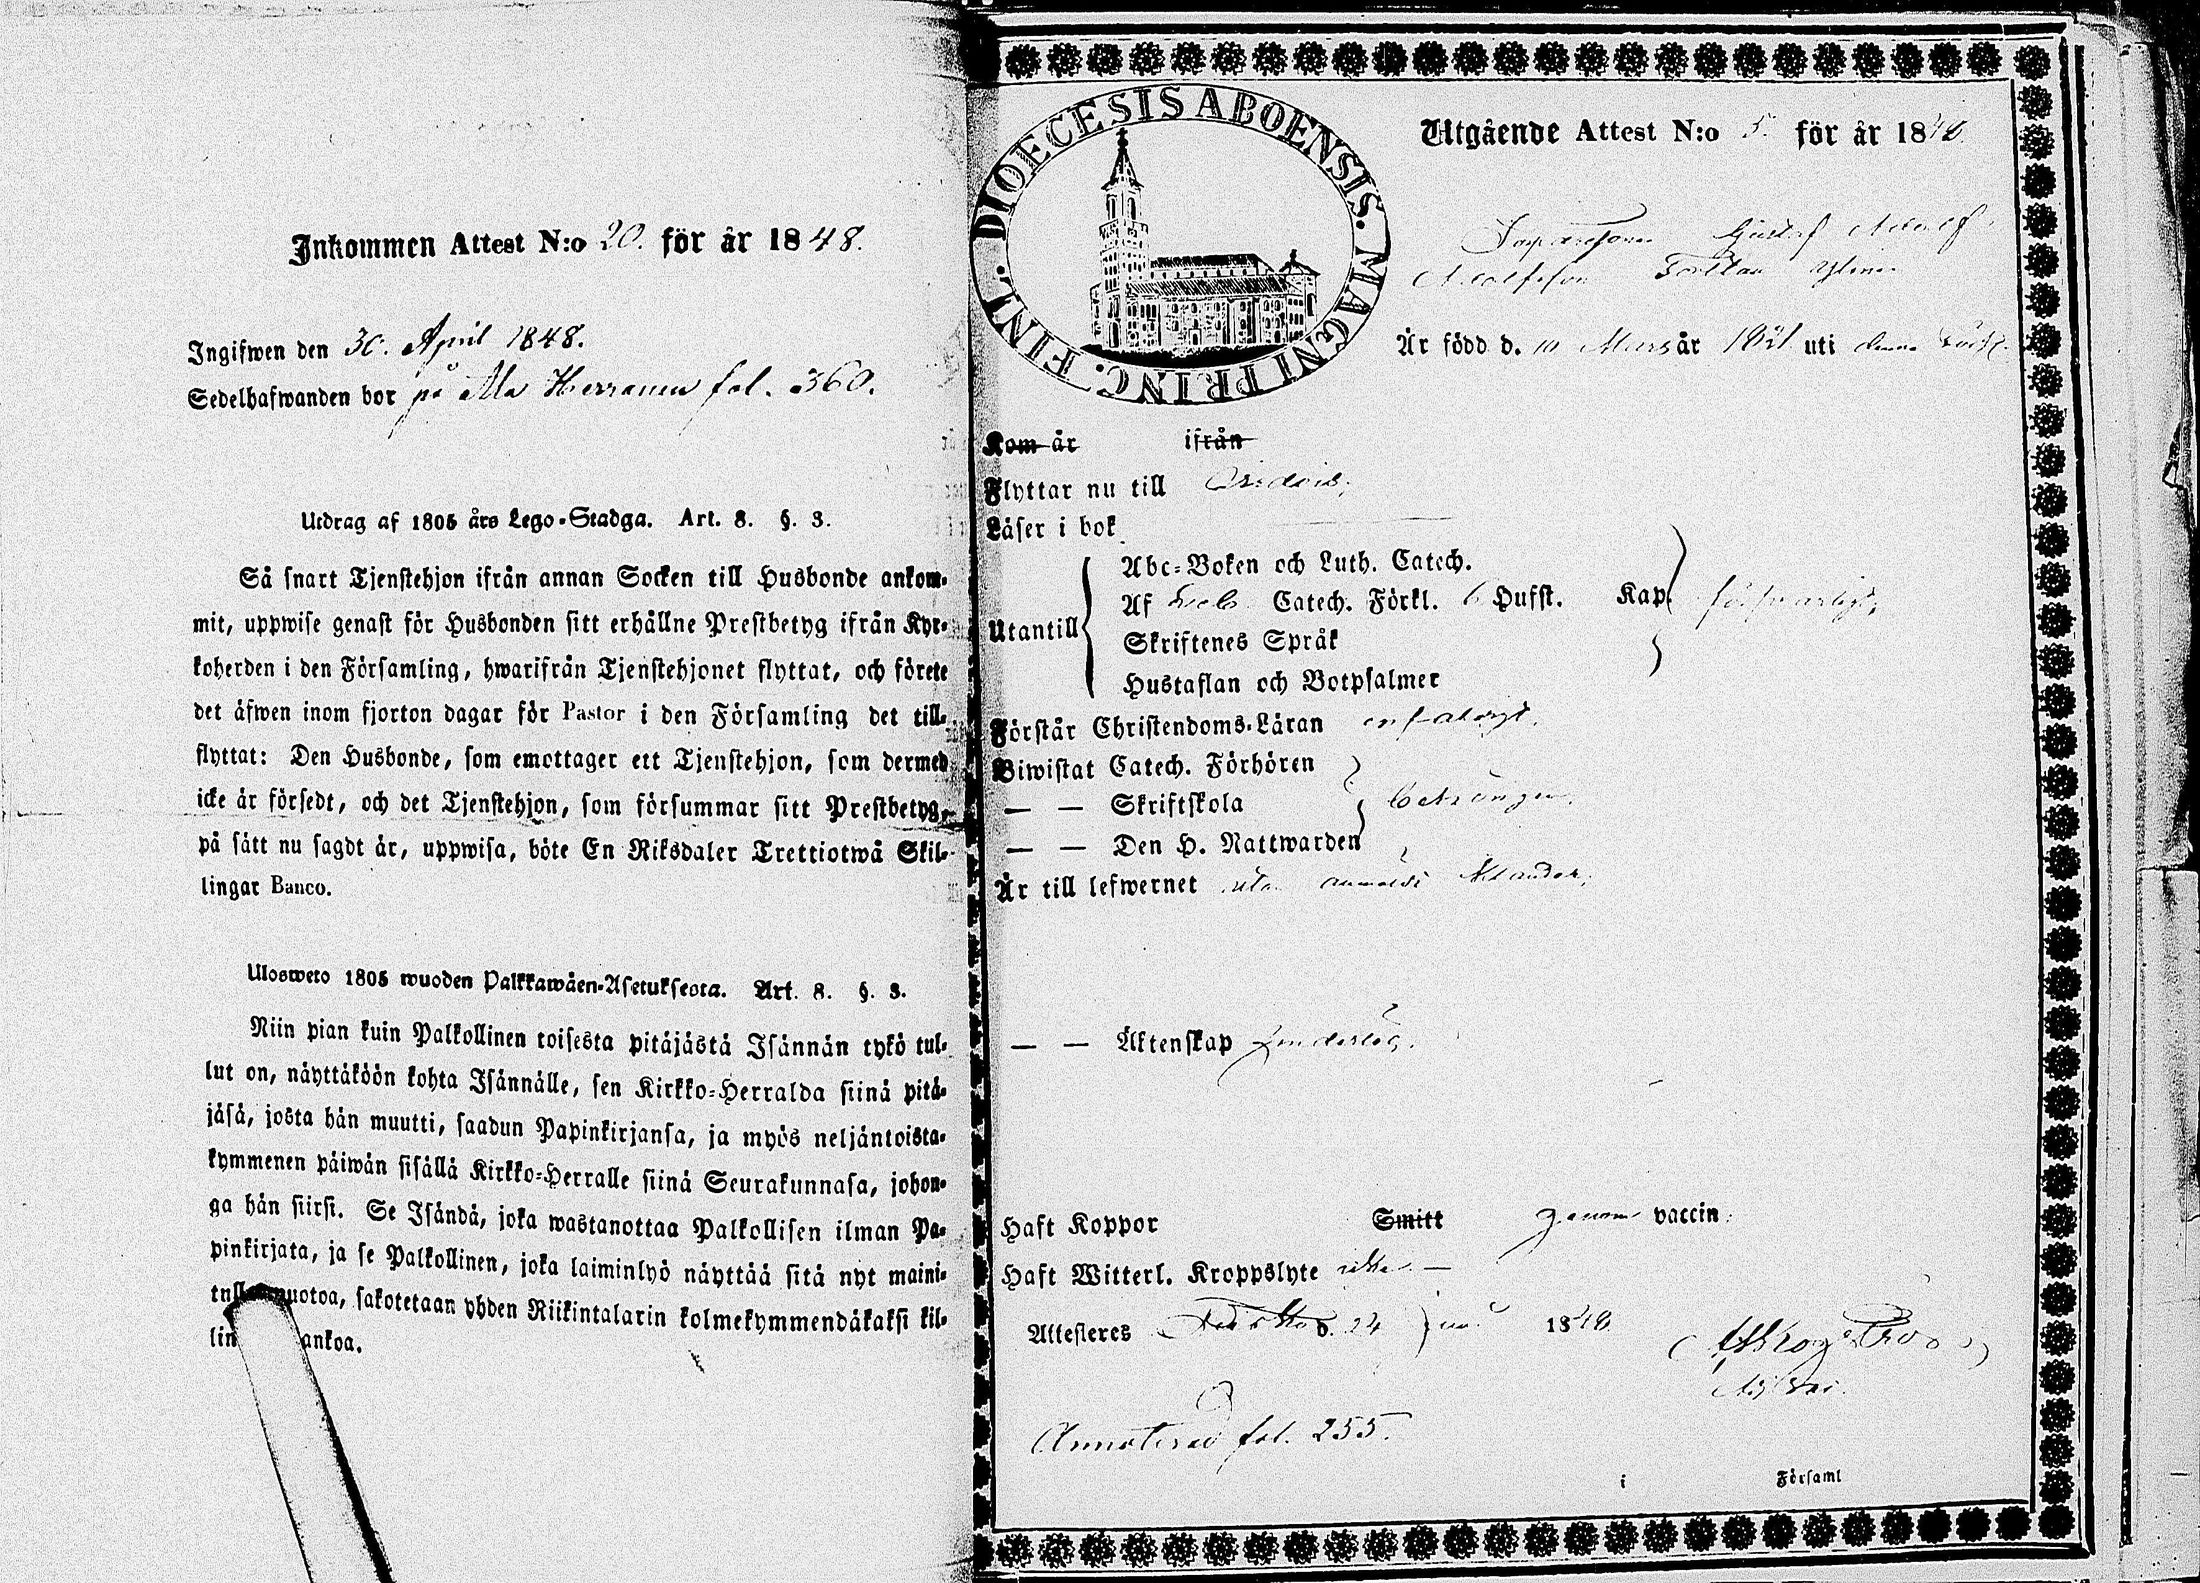 Inkommen Attest N:o 20. för år 1848.
Ingifwen den 30. April 1848.
Sedelhafwanden bor på Herranen fol. 360.
Utdrag af 1805 års Lego-Stadga. Art. 8. §. 3.
Så snart Tjenstehjon ifrån annan Socken till Husbonde ankom-
mit, uppwise genast för Husbonden sitt erhållne Prestbetyg ifrån Kyr-
koherden i den Församling, hwarifrån Tjenstehjonet flyttat, och förete
det äfwen inom fjorton dagar för Pastor i den Församling det till-
flyttat: Den Husbonde, som emottager ett Tjenstehjon, som dermed
icke är försedt, och det Tjenstehjon, som försummar sitt Prestbetyg,
på sätt nu sagdt är, uppwisa, böte En Riksdaler Trettiotwå Skil-
lingar Banco.
Ulosweto 1805 wuoden Palkkawäen-Asetuksesta. Art. 8. §. 3.
Niin pian kuin Palkollinen toisesta pitäjästä Isännän tykö tul-
lut on, näyttäköön kohta Isännälle, sen Kirkko-Herralda siinä pitä-
jäsä, josta hän muutti, saadun Papinkirjansa, ja myös neljäntoista-
kymmenen päiwän sisällä Kirkko-Herralle siinä Seurakunnasa, johon-
ga hän siirsi. Se Isändä, joka wastanottaa Palkollisen ilman Pa-
pinkirjata, ja se Palkollinen, joka laiminlyö näyttää sitä nyt maini-
muotoa, sakotetaan yhden Riikintalarin kolmekymmendäkaksi kil-
lin ankoa.
DIOECESIS ABOENSIS. MAGNI PRINC. FINL.
Utgående Attest N:o 5. för år 1848.
Gustaf Adolf
Adolfsson
Är född d. 10 Mars år 1821 uti denna
Kom år ifrån
Flyttar nu till
Läser i bok
Abc-Boken och Luth. Catech.
Af Catech. Förkl. 6 Hufst. Kap.
Utantill
Skriftenes Språk
Hustaflan och Botpsalmer
försvarligt,
Förstår Christendoms-Läran enfaldigt.
Biwistat Catech. Förhören
— — Skriftskola
— — Den H. Nattwarden
Är till lefwernet utan klander.
— — Äktenskap
Haft Koppor Smitt genom vaccin.
Haft Witterl. Kroppslyte icke. —
Attesteres d. 24 1848
Annoterad fol. 255.
i Församl